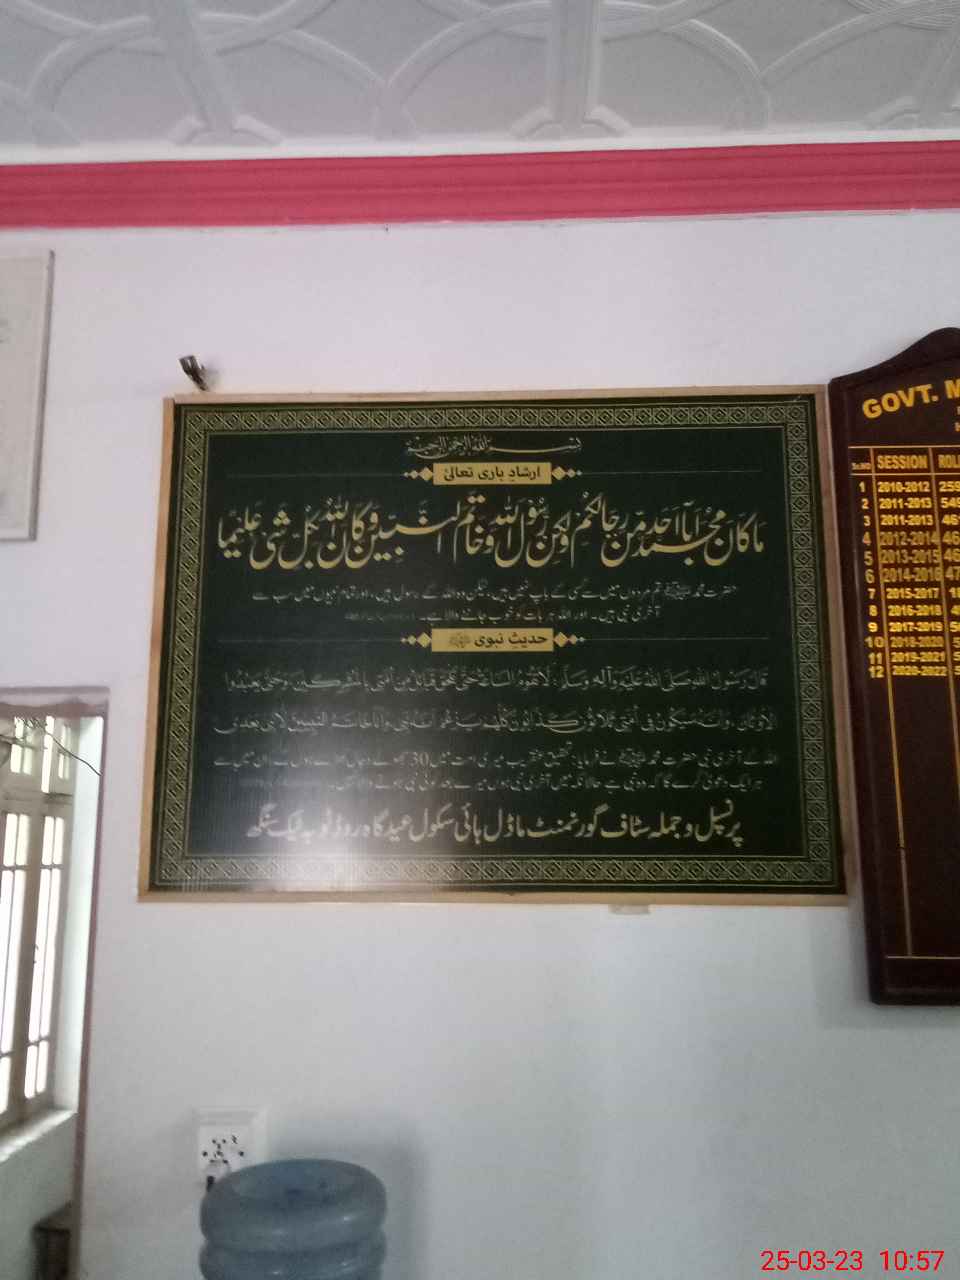 بسم الله الرحمن الرحيم
ارشاد باری تعالیٰ
مَا كَانَ مُحَمَّدٌ اَبَآ اَحَدٍ مِّنْ رِّجَالِكُمْ وَلٰكِنْ رَّسُوْلَ اللهِ وَخَاتَمَ النَّبِيّٖنَ وَكَانَ اللهُ بِكُلِّ شَیْءٍ عَلِيْمًا
حضرت محمد ﷺ تم مردوں میں سے کسی کے باپ نہیں ہیں، لیکن وہ اللہ کے رسول ہیں، اور تمام نبیوں میں سب سے
آخری نبی ہیں۔ اور اللہ ہر بات کو خوب جاننے والا ہے۔
حدیث نبوی ﷺ
قَالَ رَسُولُ اللهِ صَلَّى اللهُ عَلَيْهِ وَآلِهِ وَسَلَّمَ: لَا تَقُومُ السَّاعَةُ حَتَّى تَلْحَقَ قَبَائِلُ مِنْ أُمَّتِي بِالْمُشْرِكِينَ وَحَتَّى يَعْبُدُوا
الْأَوْثَانَ، وَإِنَّهُ سَيَكُونُ فِي أُمَّتِي ثَلَاثُونَ كَذَّابُونَ كُلُّهُمْ يَزْعُمُ أَنَّهُ نَبِيٌّ وَأَنَا خَاتَمُ النَّبِيِّينَ لَا نَبِيَّ بَعْدِي
اللہ کے آخری نبی حضرت محمد ﷺ نے فرمایا: تحقیق عنقریب میری امت میں 30 جھوٹے دجال ظاہر ہوں گے، ان میں سے
ہر ایک دعویٰ کرے گا کہ وہ نبی ہے حالانکہ میں آخری نبی ہوں میرے بعد کوئی نبی
پرنسپل و جملہ سٹاف گورنمنٹ ماڈل ہائی سکول عیدگاہ روڈ ٹوبہ ٹیک سنگھ
GOVT. M
Sr.NO SESSION ROLL
1 2010-2012 259
2 2011-2013 545
3 2011-2013 46
4 2012-2014 46
5 2013-2015 46
6 2014-2016 47
7 2015-2017
8 2016-2018
9 2017-2019
10 2018-2020 5
11 2019-2021 5
12 2020-2022 5
25-03-23 10:57